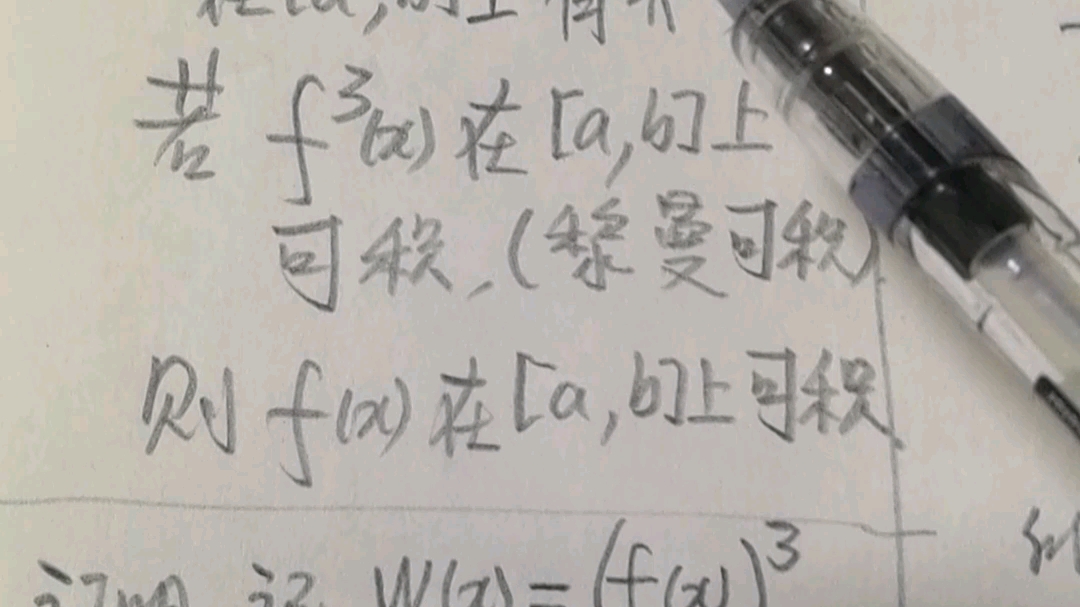 在[a,b]上有界
若 f³(x) 在[a,b]上
可积,(黎曼可积)
则 f(x) 在[a,b]上可积
证明 记 W(x)=(f(x))³